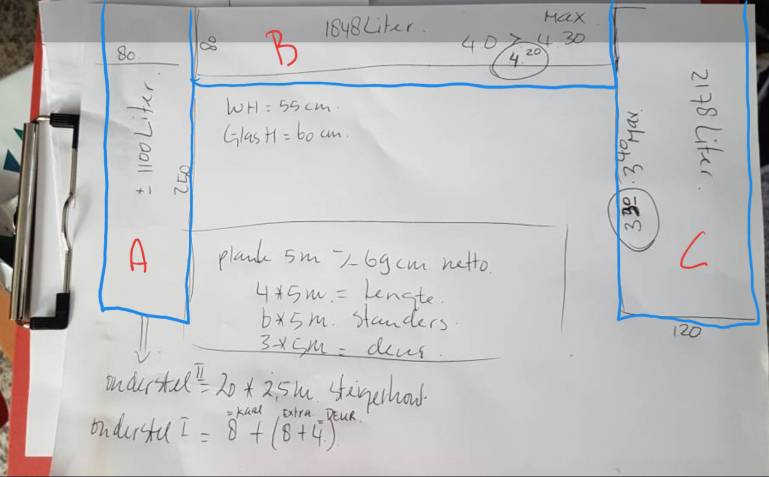 80
± 1100 Liter
250
A
80
B
1848 Liter.
Max
4.0 > 4.30
4.20
WH = 55 cm.
Glas H = 60 cm.
2178 Liter.
3.40 Max.
330
C
120
plank 5m > 69 cm netto.
4 * 5m. = Lengte.
6 * 5m. standers.
3 * 5m = deur.
onderstel II = 20 * 2,5m. steigerhout
= kaal Extra = DEUR.
onderstel I = 8 + (8+4)